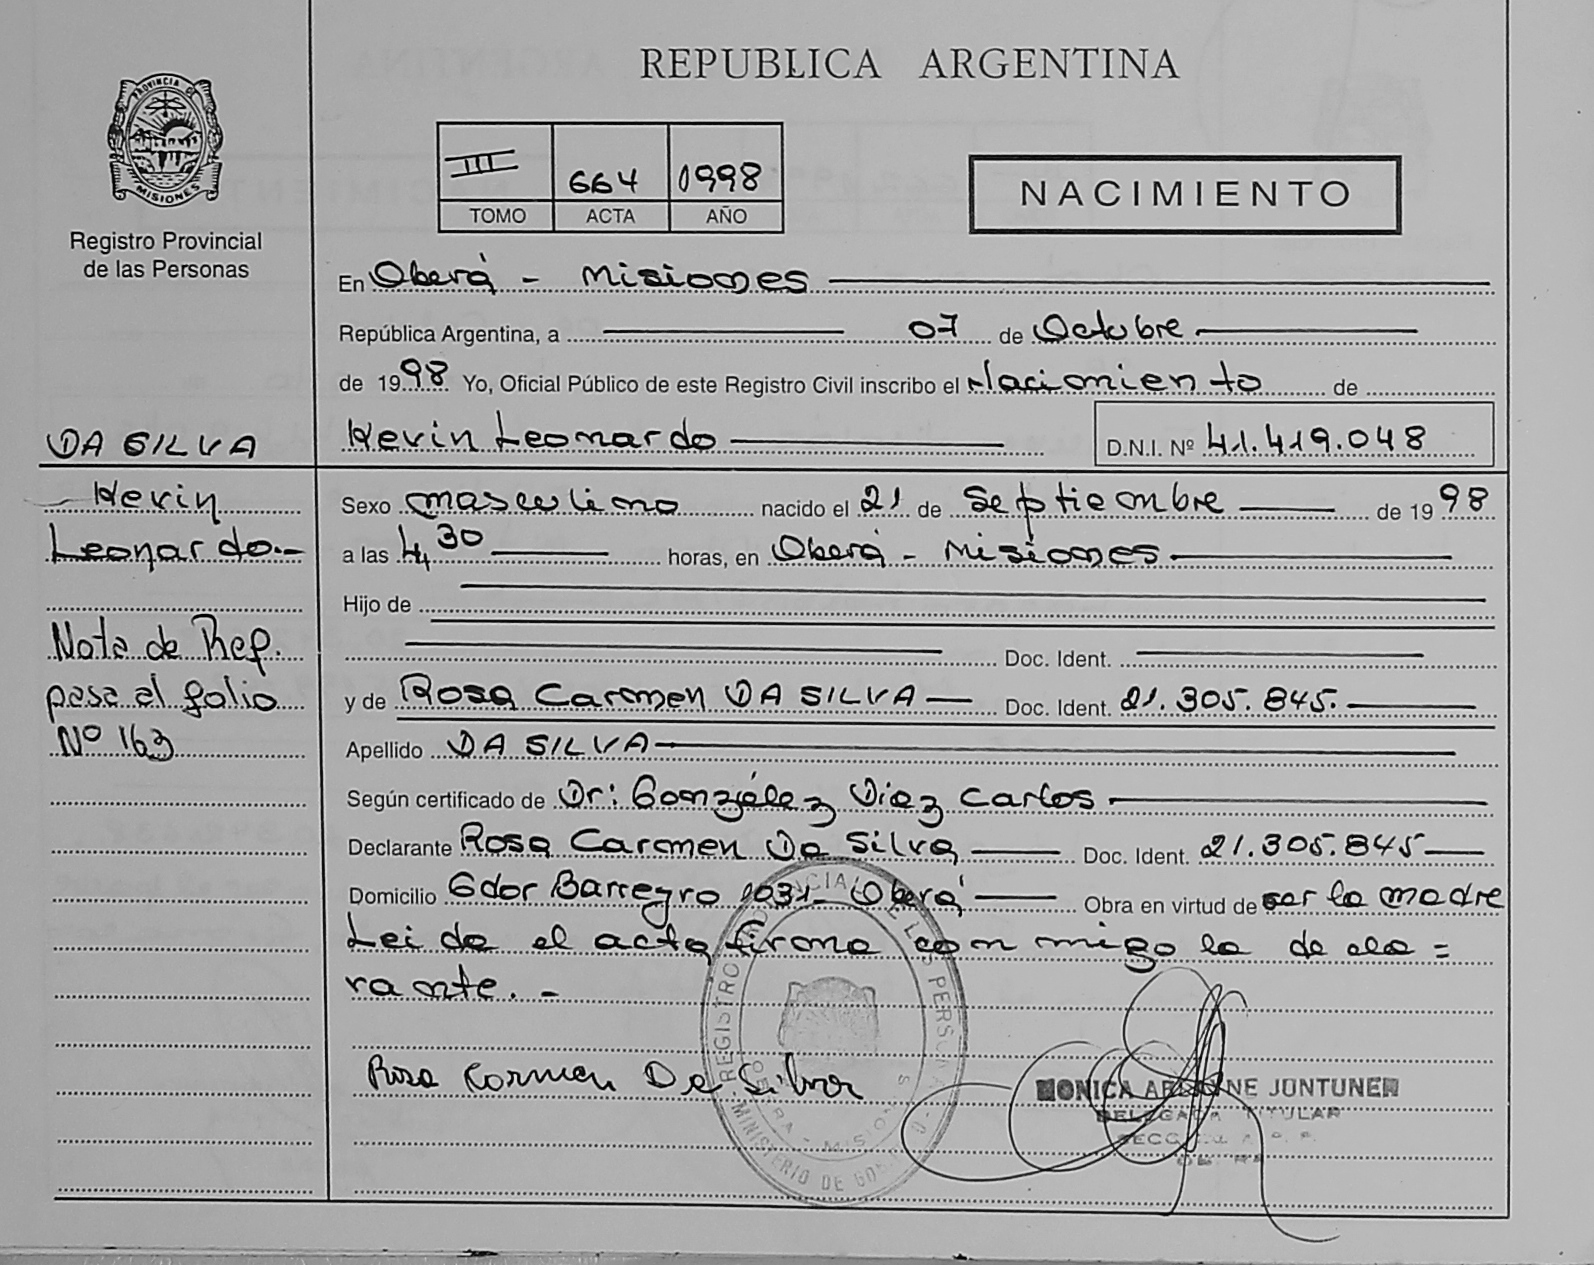 REPUBLICA ARGENTINA
PROVINCIA DE
MISIONES
Registro Provincial
de las Personas
III 664 1998
TOMO ACTA AÑO
NACIMIENTO
En Oberá - Misiones
República Argentina, a 07 de Octubre
de 1998 Yo, Oficial Público de este Registro Civil inscribo el Nacimiento de
Kevin Leonardo D.N.I. Nº 41.419.048
DA SILVA
Kevin
Leonardo.-
Nota de Ref.
pasa al folio
Nº 163
Sexo masculino nacido el 21 de Septiembre de 1998
a las 4,30 horas, en Oberá - Misiones
Hijo de
Doc. Ident.
y de Rosa Carmen DA SILVA Doc. Ident. 21.305.845.
Apellido DA SILVA
Según certificado de Dr: González Diez Carlos
Declarante Rosa Carmen Da Silva Doc. Ident. 21.305.845
Domicilio Gdor Barreyro 1031- Oberá Obra en virtud de ser la madre
Leida el acta firma conmigo la decla=
rante.-
Rosa Carmen Da Silva
REGISTRO PROVINCIAL DE LAS PERSONAS
OBERA - MISIONES
MINISTERIO DE GOB
MONICA ARIANE JUNTUNEN
DELEGADA TITULAR